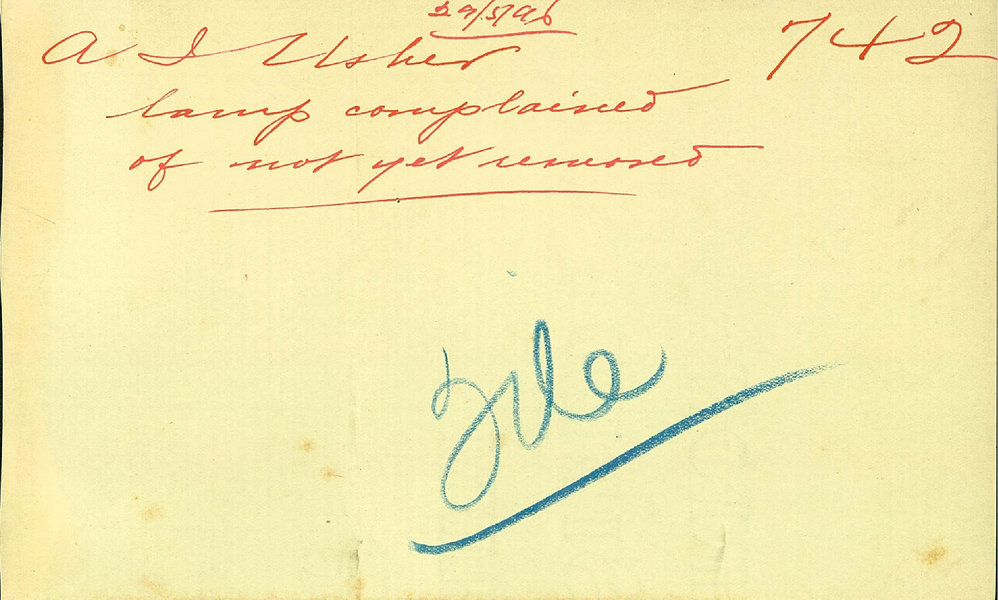 29/5/96
A I Usher 742
lamp complained
of not yet removed
File